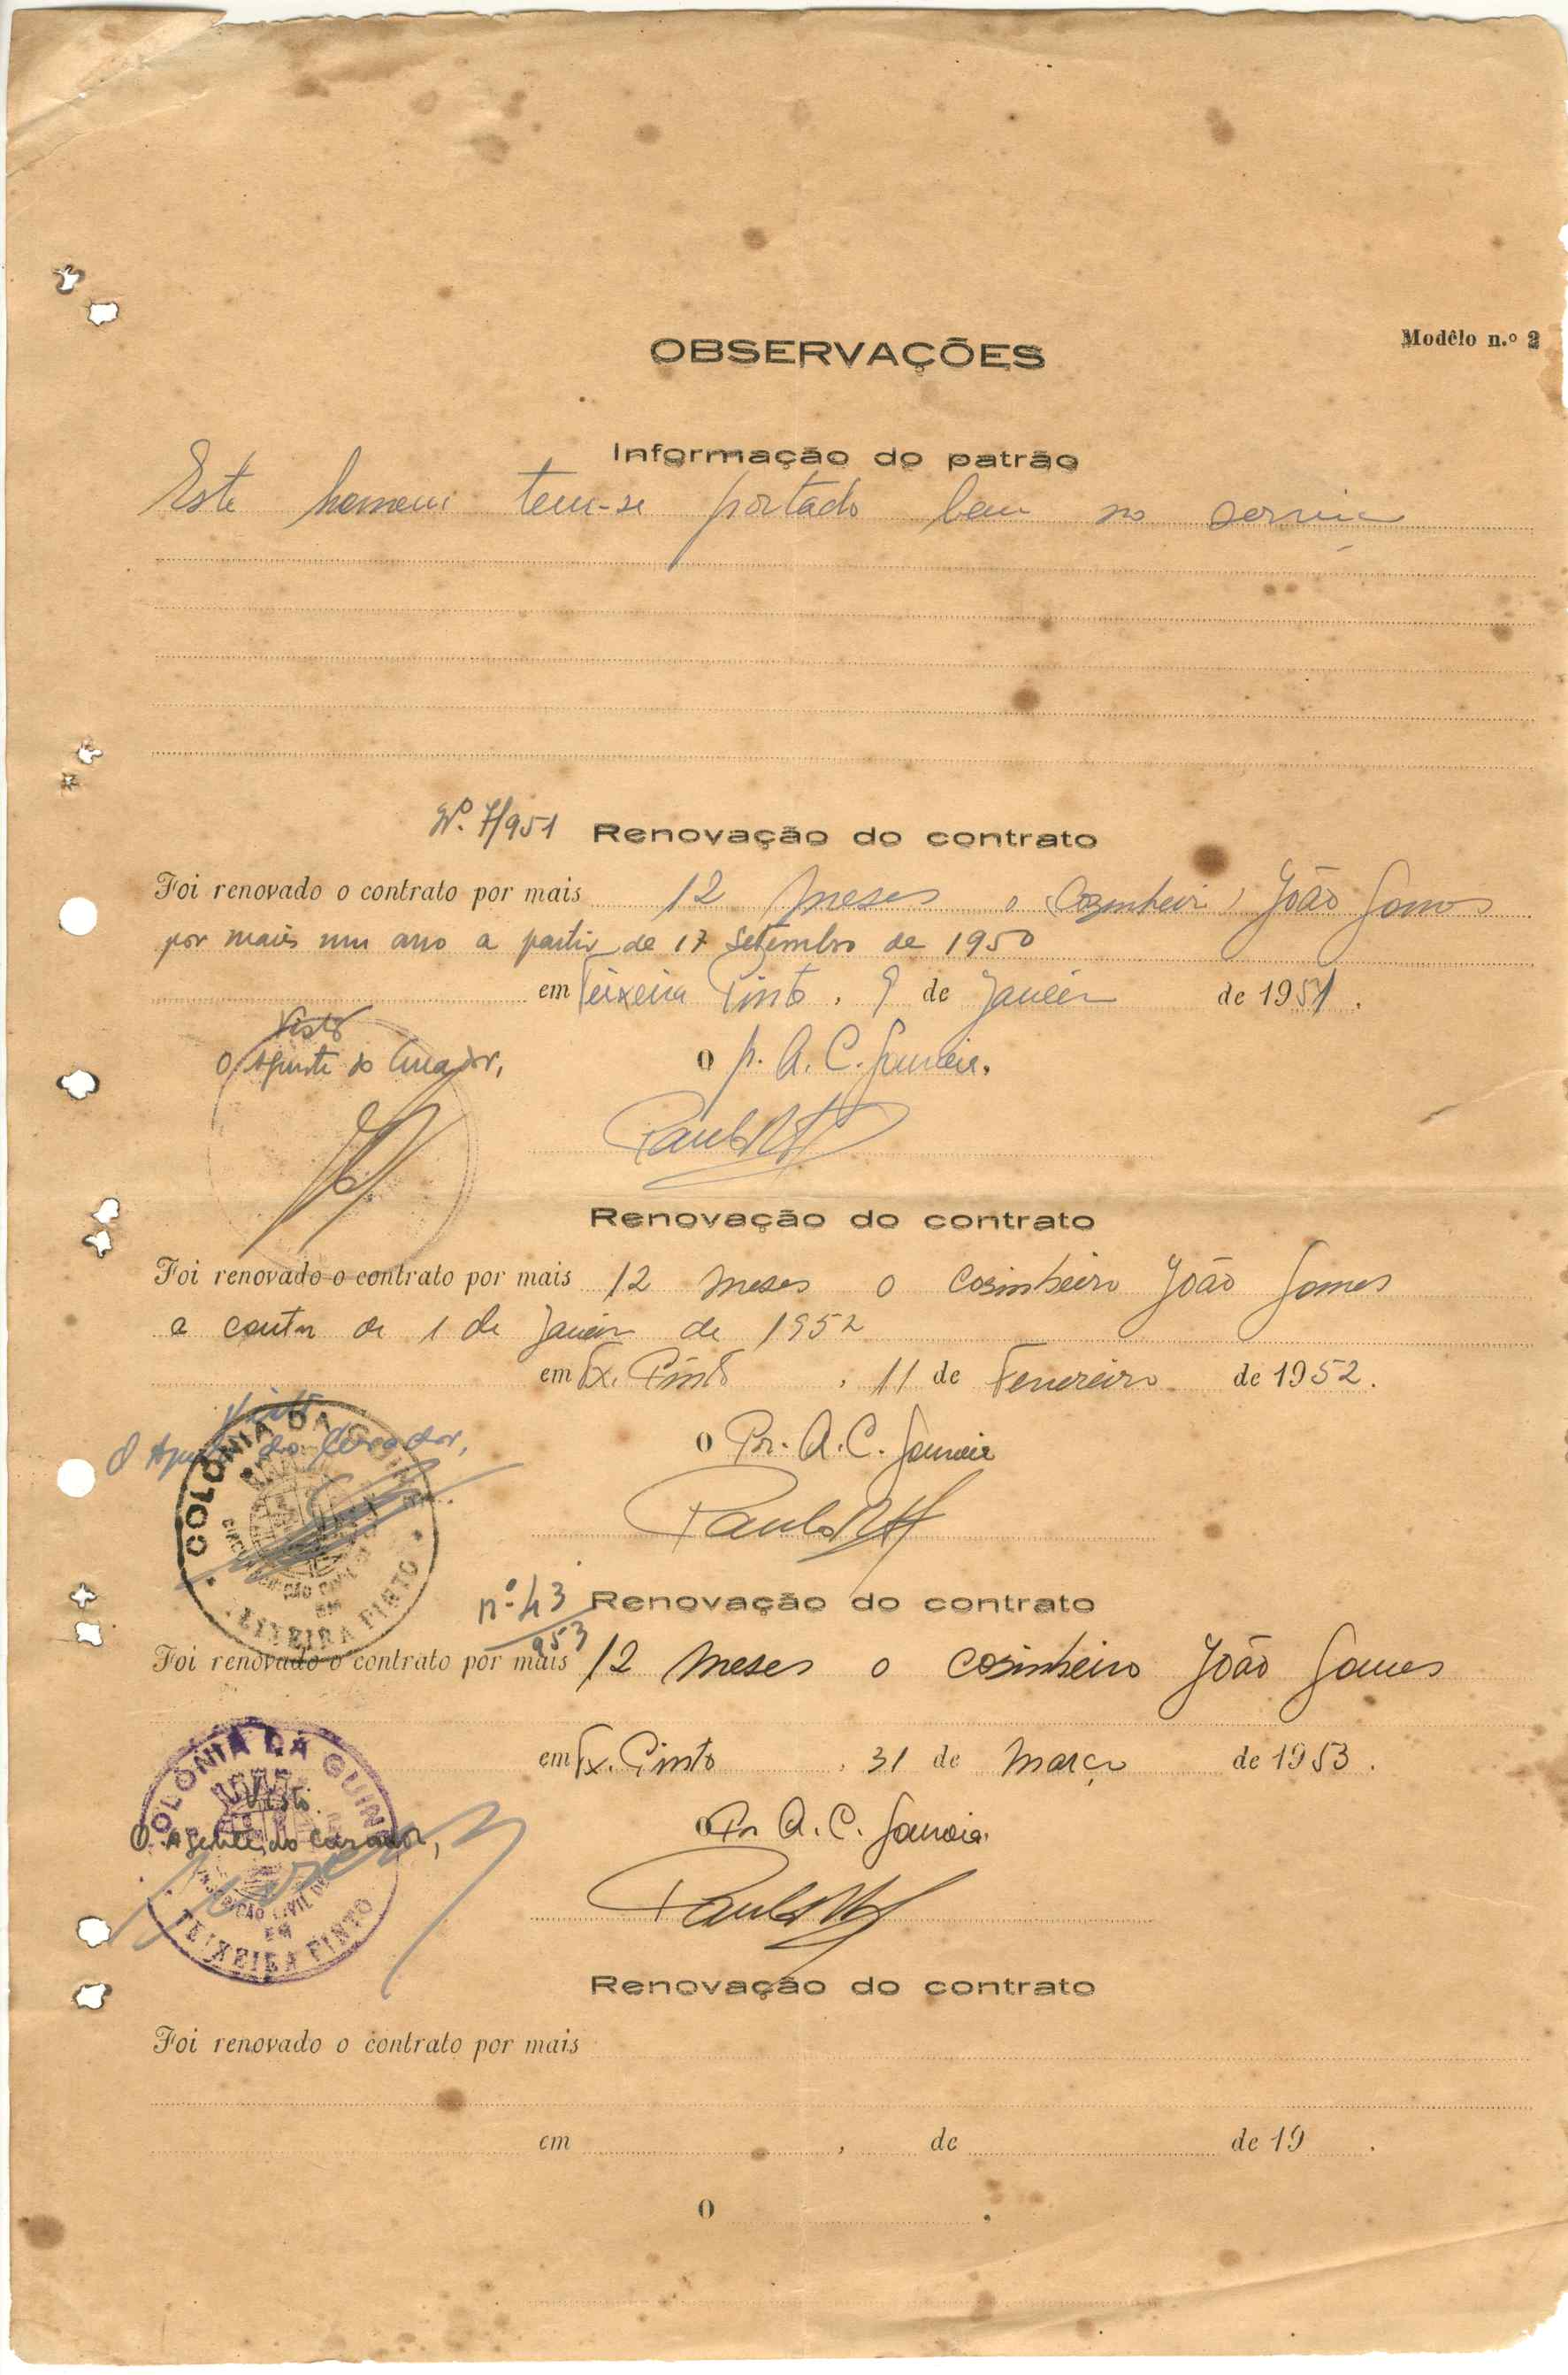 OBSERVAÇÕES
Modêlo n.º 2
Informação do patrão
Este homem tem-se portado bem no serviço
Nº. 7/951 Renovação do contrato
Foi renovado o contrato por mais 12 meses o Cozinheiro João Gomes
por mais um ano a partir de 17 Setembro de 1950
em Teixeira Pinto, 9 de Janeiro de 1951.
Visto
O Agente do Curador,
O p. A. C. Gouveia.
Renovação do contrato
Foi renovado o contrato por mais 12 meses o cosinheiro João Gomes
a contar de 1 de Janeiro de 1952
em Tx. Pinto, 11 de Fevereiro de 1952.
Visto
O Agente do Curador,
O Pr. A. C. Gouveia
COLONIA DA GUINÉ
TEIXEIRA PINTO
nº. 43 Renovação do contrato
953
Foi renovado o contrato por mais 12 meses o cosinheiro João Gomes
em Tx. Pinto, 31 de Março de 1953.
COLONIA DA GUINÉ
Visto
O Agente do Curador,
O Pr A. C. Gouveia.
EM
TEIXEIRA PINTO
Renovação do contrato
Foi renovado o contrato por mais
em , de de 19 .
O .